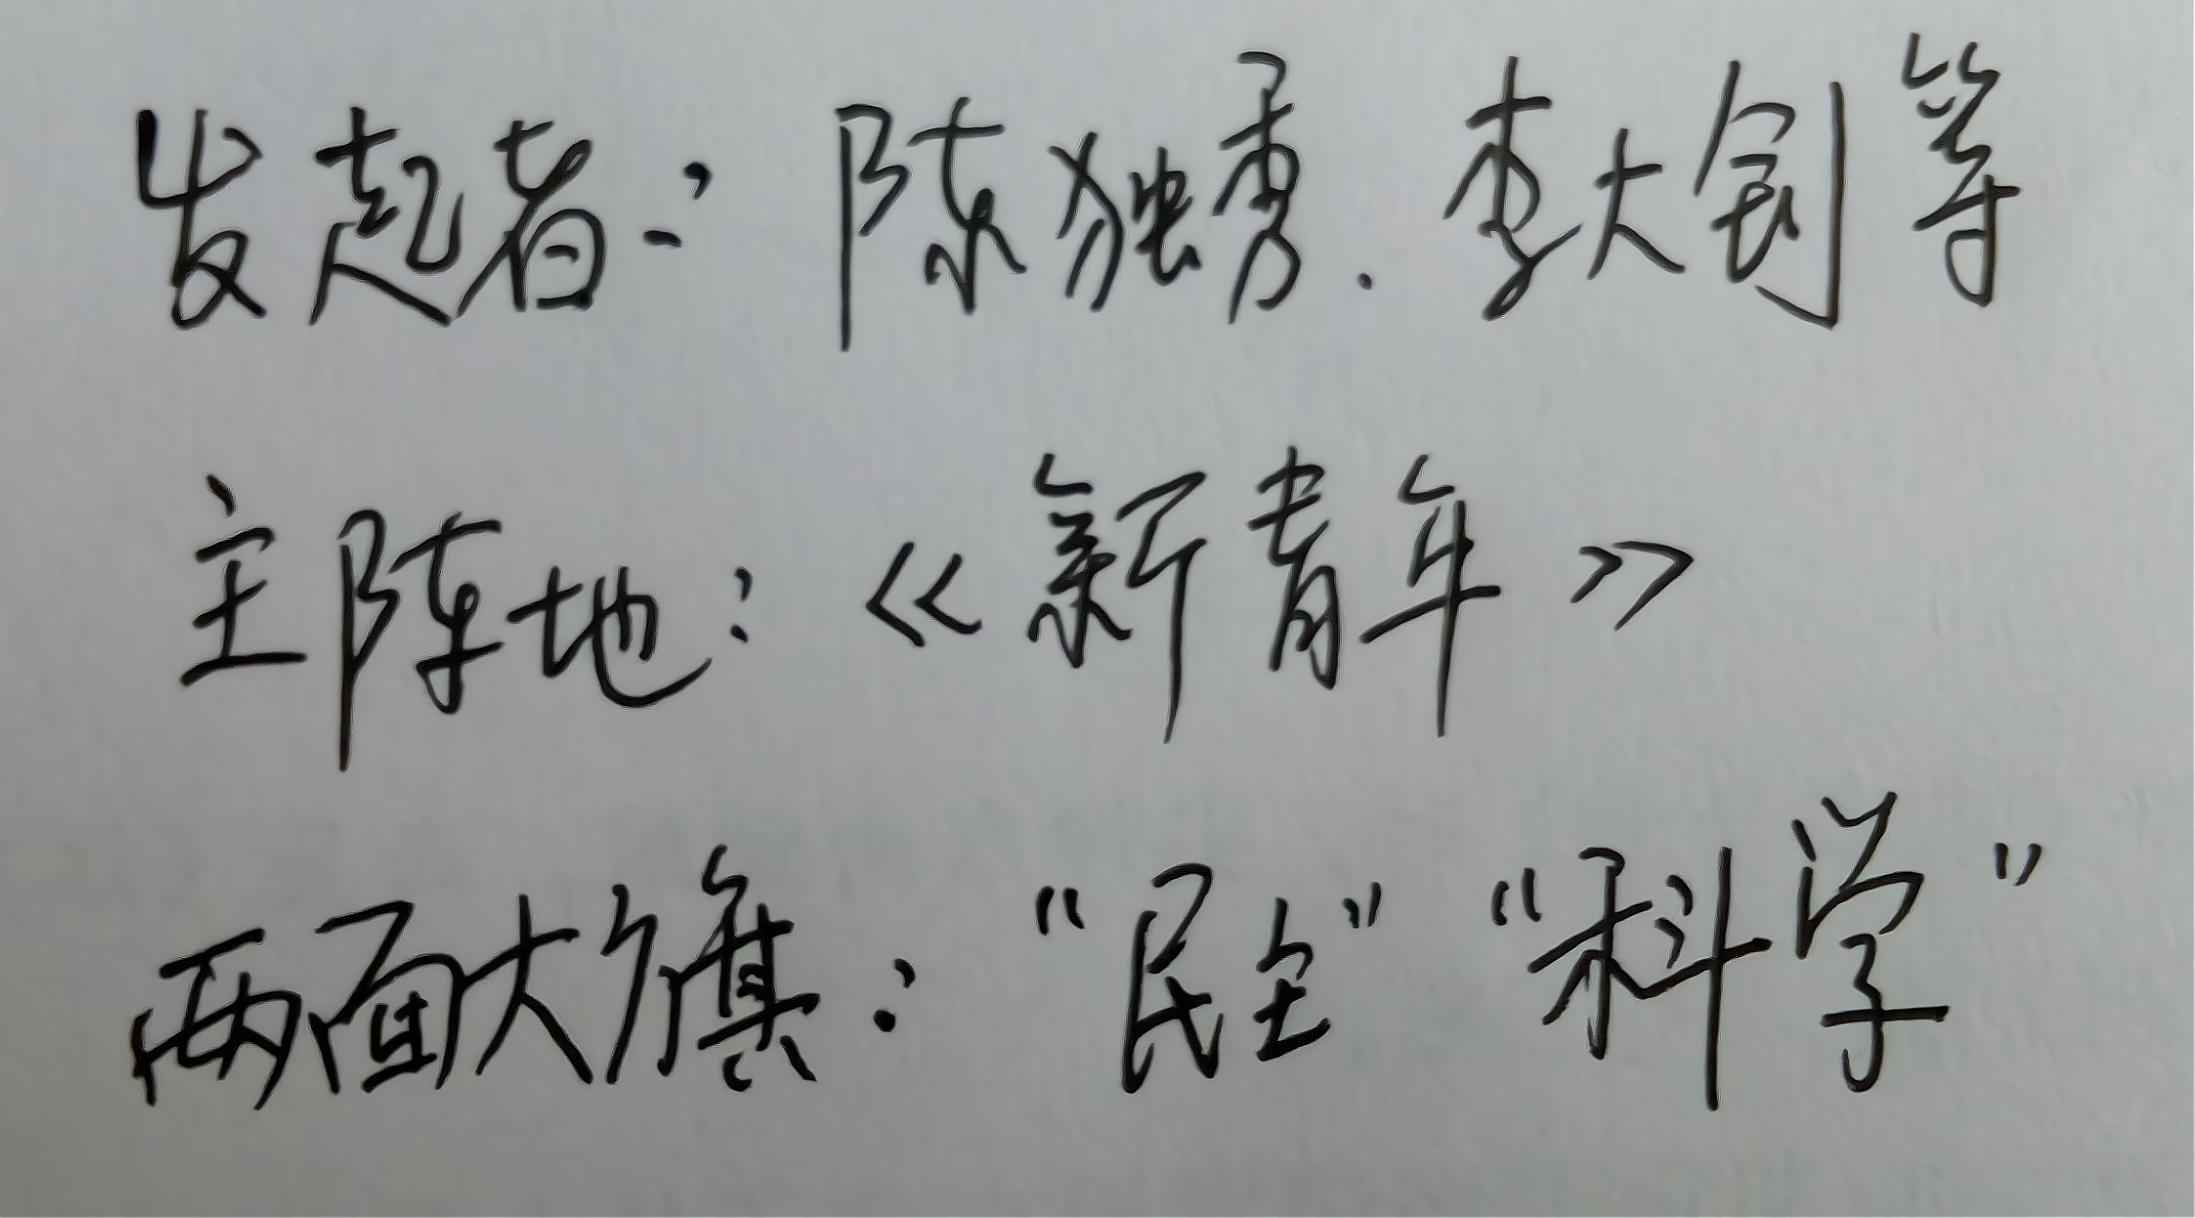 发起者：陈独秀、李大钊等
主阵地：《新青年》
两面大旗：“民主”“科学”